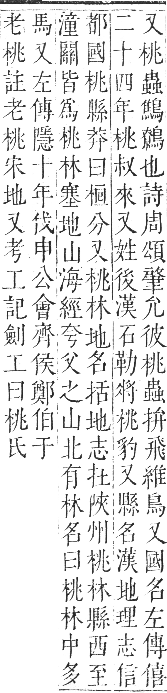 又桃蟲鷦鷯也詩周頌肇允彼桃蟲拚飛維鳥又國名左傳僖
二十四年桃叔來又姓後漢石勒將桃豹又縣名漢地理志信
都國桃縣莽曰桓分又桃林地名括地志在陝州桃林縣西至
潼關皆爲桃林塞地山海經夸父之山北有林名曰桃林中多
馬又左傳隱十年伐申公會齊侯鄭伯于
老桃註老桃宋地又考工記劍工曰桃氏